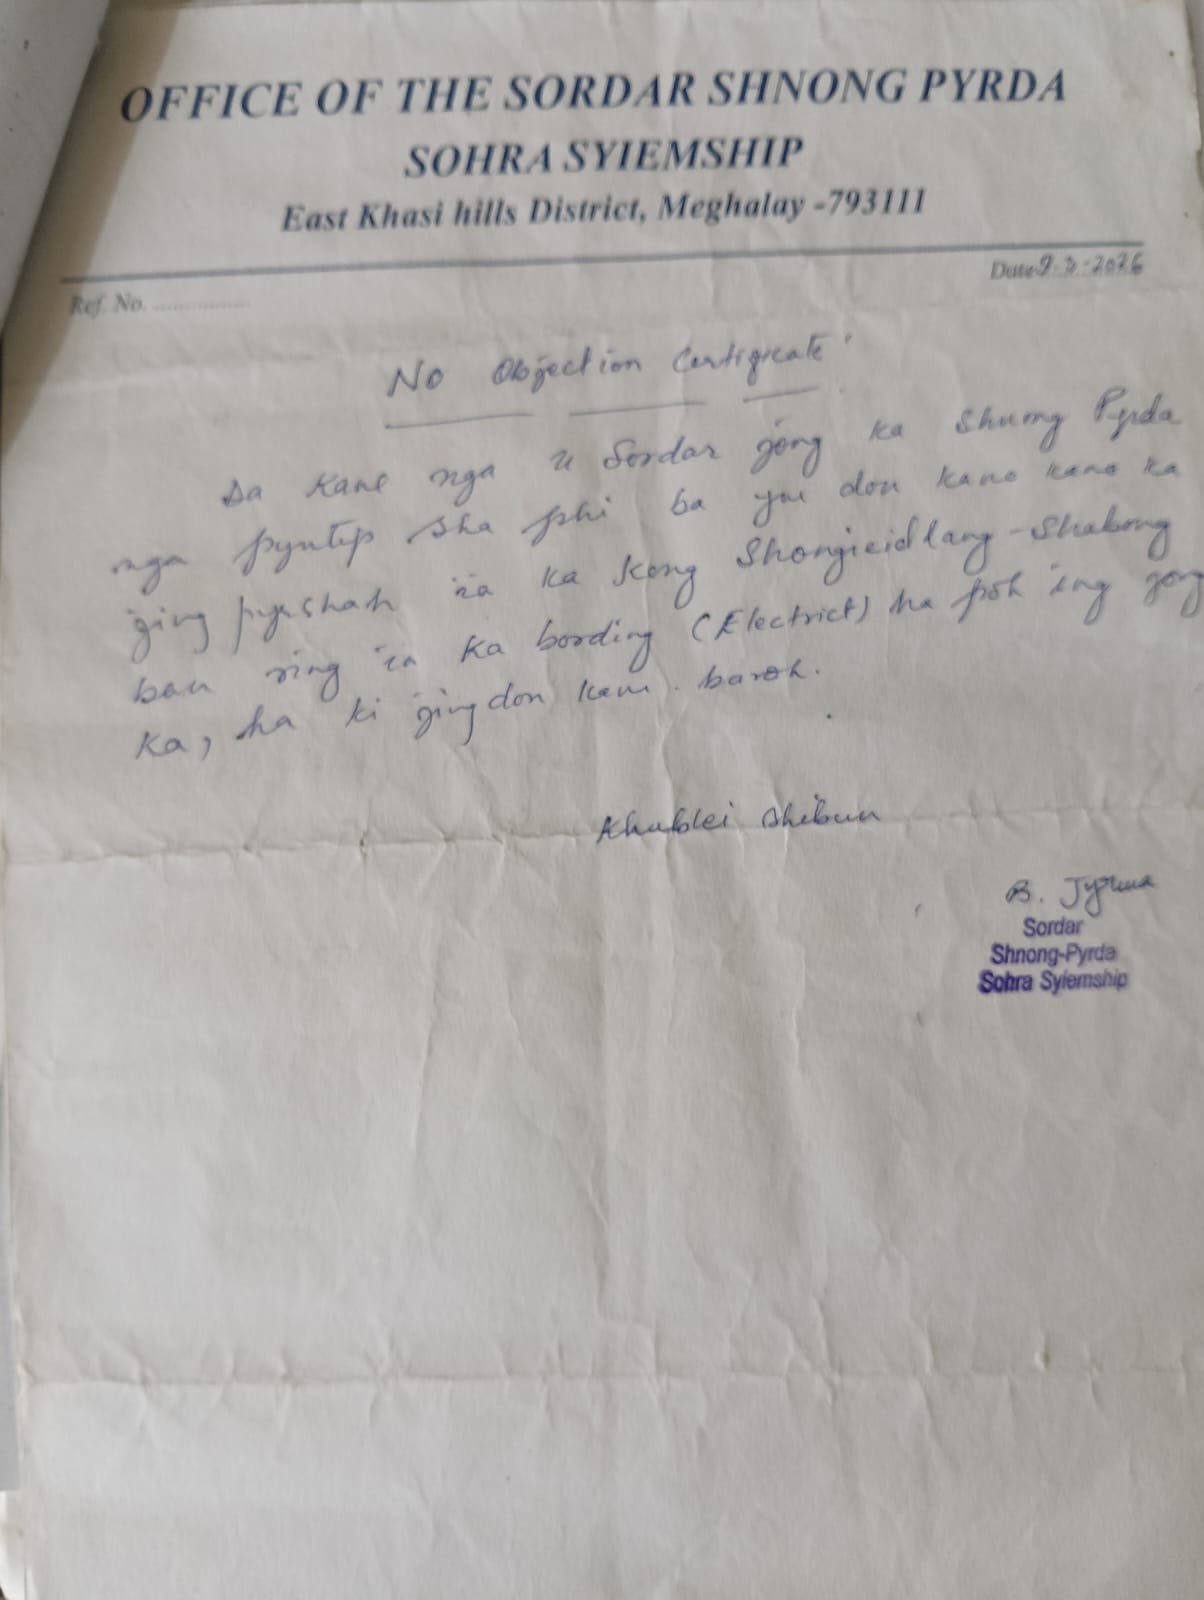 OFFICE OF THE SORDAR SHNONG PYRDA
SOHRA SYIEMSHIP
East Khasi hills District, Meghalay -793111
Date 9-3-2026
Ref. No. ................
No Objection Certificate
Da kane nga u Sordar jong ka Shnong Pyrda
nga pyntip sha phi ba ym don kano kano ka
jing pyrshah ïa ka Kong Shongieidlang-Shabong
ban ring ïa ka bording (Electrict) ha poh ïng jong
ka, ha ki jingdon kam baroh.
Khublei Shibun
B. Jyrwa
Sordar
Shnong-Pyrda
Sohra Syiemship